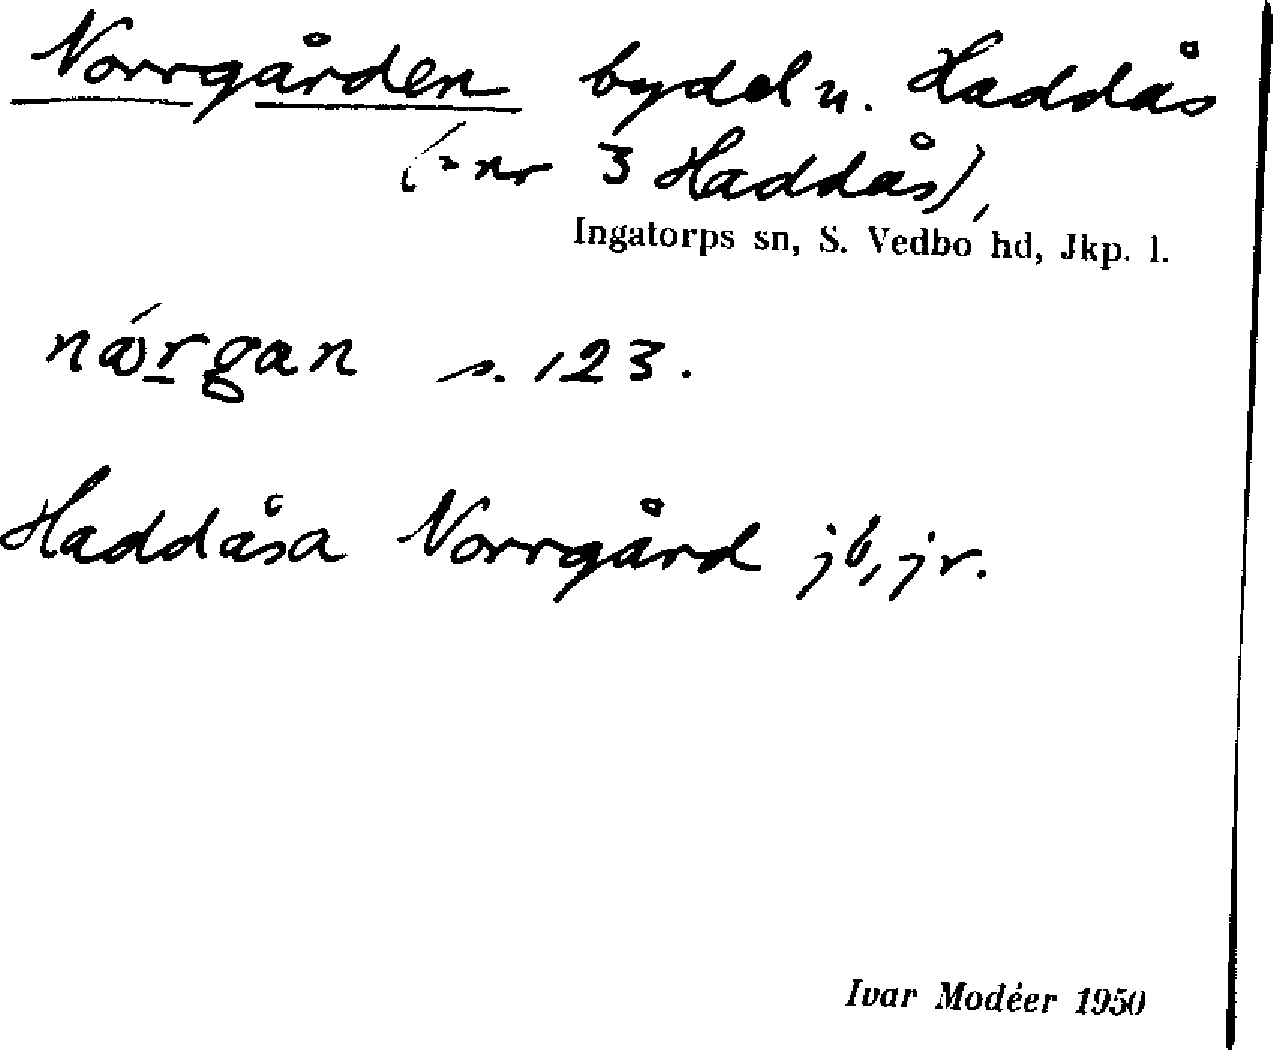 Norrgården bydel u. Haddås
(= nr 3 Haddås),
Ingatorps sn, S. Vedbo hd, Jkp. l.
s. 123.
Haddåsa Norrgård jb, jr.
Ivar Modéer 1950